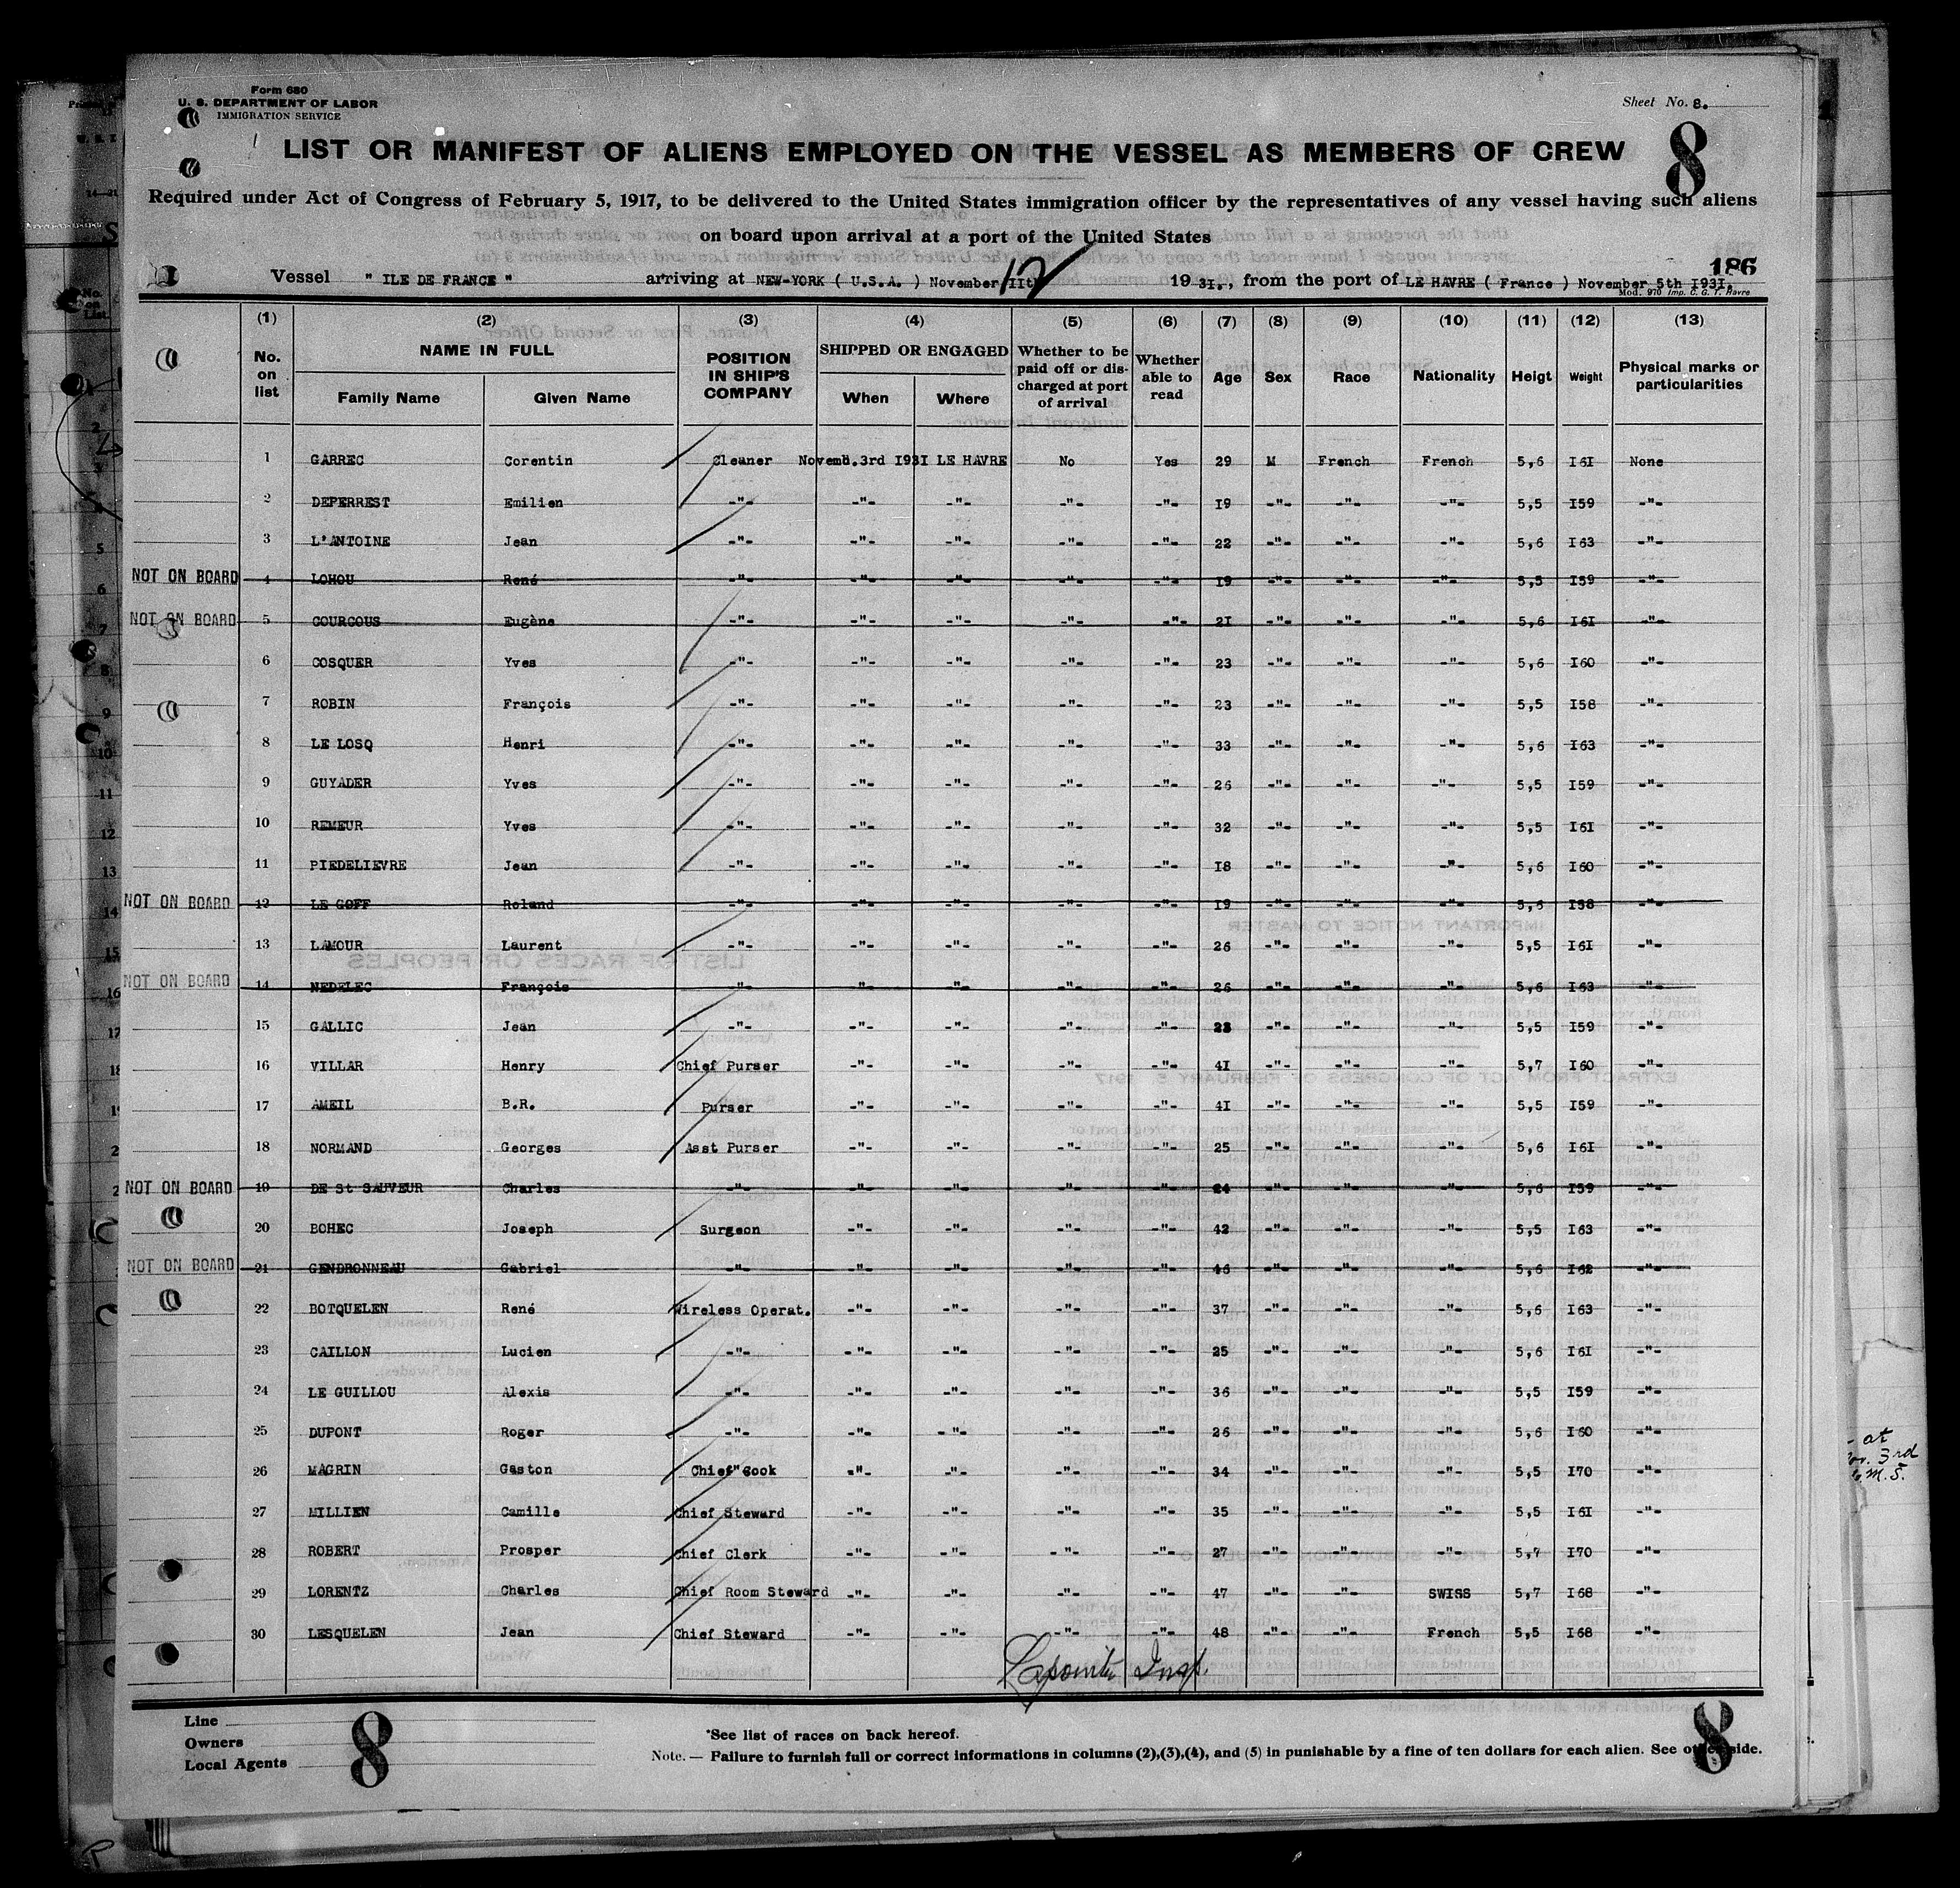 Form 680
U. S. DEPARTMENT OF LABOR
IMMIGRATION SERVICE
Sheet No. 8.
8
LIST OR MANIFEST OF ALIENS EMPLOYED ON THE VESSEL AS MEMBERS OF CREW
Required under Act of Congress of February 5, 1917, to be delivered to the United States immigration officer by the representatives of any vessel having such aliens
on board upon arrival at a port of the United States
186
Vessel " ILE DE FRANCE " arriving at NEW-YORK ( U.S.A. ) November 12 IIth 19 3I., from the port of LE HAVRE ( France ) November 5th I93I.
Mod. 970 Imp. C. G. T. Havre
(1) (2) (3) (4) (5) (6) (7) (8) (9) (10) (11) (12) (13)
No. on list NAME IN FULL Family Name Given Name POSITION IN SHIP'S COMPANY SHIPPED OR ENGAGED When Where Whether to be paid off or discharged at port of arrival Whether able to read Age Sex Race Nationality Heigt Weight Physical marks or particularities
1 GARREC Corentin Cleaner Novemb.3rd I93I LE HAVRE No Yes 29 M French French 5,6 I6I None
2 DEPERREST Emilien -"- -"- -"- -"- -"- I9 -"- -"- -"- 5,5 I59 -"-
3 L'ANTOINE Jean -"- -"- -"- -"- -"- 22 -"- -"- -"- 5,6 I63 -"-
NOT ON BOARD 4 LOHOU René -"- -"- -"- -"- -"- I9 -"- -"- -"- 5,5 I59 -"-
NOT ON BOARD 5 COURCOUS Eugène -"- -"- -"- -"- -"- 2I -"- -"- -"- 5,6 I6I -"-
6 COSQUER Yves -"- -"- -"- -"- -"- 23 -"- -"- -"- 5,6 I60 -"-
7 ROBIN François -"- -"- -"- -"- -"- 23 -"- -"- -"- 5,5 I58 -"-
8 LE LOSQ Henri -"- -"- -"- -"- -"- 33 -"- -"- -"- 5,6 I63 -"-
9 GUYADER Yves -"- -"- -"- -"- -"- 26 -"- -"- -"- 5,5 I59 -"-
10 REMEUR Yves -"- -"- -"- -"- -"- 32 -"- -"- -"- 5,5 I6I -"-
11 PIEDELIEVRE Jean -"- -"- -"- -"- -"- I8 -"- -"- -"- 5,6 I60 -"-
NOT ON BOARD 12 LE GOFF Roland -"- -"- -"- -"- -"- I9 -"- -"- -"- 5,6 I58 -"-
13 LAMOUR Laurent -"- -"- -"- -"- -"- 26 -"- -"- -"- 5,5 I6I -"-
NOT ON BOARD 14 NEDELEC François -"- -"- -"- -"- -"- 26 -"- -"- -"- 5,6 I63 -"-
15 GALLIC Jean -"- -"- -"- -"- -"- 23 -"- -"- -"- 5,5 I59 -"-
16 VILLAR Henry Chief Purser -"- -"- -"- -"- 4I -"- -"- -"- 5,7 I60 -"-
17 AMEIL B.R. Purser -"- -"- -"- -"- 4I -"- -"- -"- 5,5 I59 -"-
18 NORMAND Georges Asst Purser -"- -"- -"- -"- 25 -"- -"- -"- 5,6 I6I -"-
NOT ON BOARD 19 DE St SAUVEUR Charles -"- -"- -"- -"- -"- 24 -"- -"- -"- 5,6 I59 -"-
20 BOHEC Joseph Surgeon -"- -"- -"- -"- 42 -"- -"- -"- 5,5 I63 -"-
NOT ON BOARD 21 GENDRONNEAU Gabriel -"- -"- -"- -"- -"- 46 -"- -"- -"- 5,6 I62 -"-
22 BOTQUELEN René Wireless Operat. -"- -"- -"- -"- 37 -"- -"- -"- 5,6 I63 -"-
23 CAILLON Lucien -"- -"- -"- -"- -"- 25 -"- -"- -"- 5,6 I6I -"-
24 LE GUILLOU Alexis -"- -"- -"- -"- -"- 36 -"- -"- -"- 5,5 I59 -"-
25 DUPONT Roger -"- -"- -"- -"- -"- 26 -"- -"- -"- 5,6 I60 -"-
26 MAGRIN Gaston Chief Cook -"- -"- -"- -"- 34 -"- -"- -"- 5,5 I70 -"-
27 MILLIEN Camille Chief Steward -"- -"- -"- -"- 35 -"- -"- -"- 5,5 I6I -"-
28 ROBERT Prosper Chief Clerk -"- -"- -"- -"- 27 -"- -"- -"- 5,7 I70 -"-
29 LORENTZ Charles Chief Room Steward -"- -"- -"- -"- 47 -"- -"- SWISS 5,7 I68 -"-
30 LESQUELEN Jean Chief Steward -"- -"- -"- -"- 48 -"- -"- French 5,5 I68 -"-
Line
Owners
Local Agents
8
*See list of races on back hereof.
Note. — Failure to furnish full or correct informations in columns (2),(3),(4), and (5) in punishable by a fine of ten dollars for each alien. See other side.
8
at
3rd
M.S.